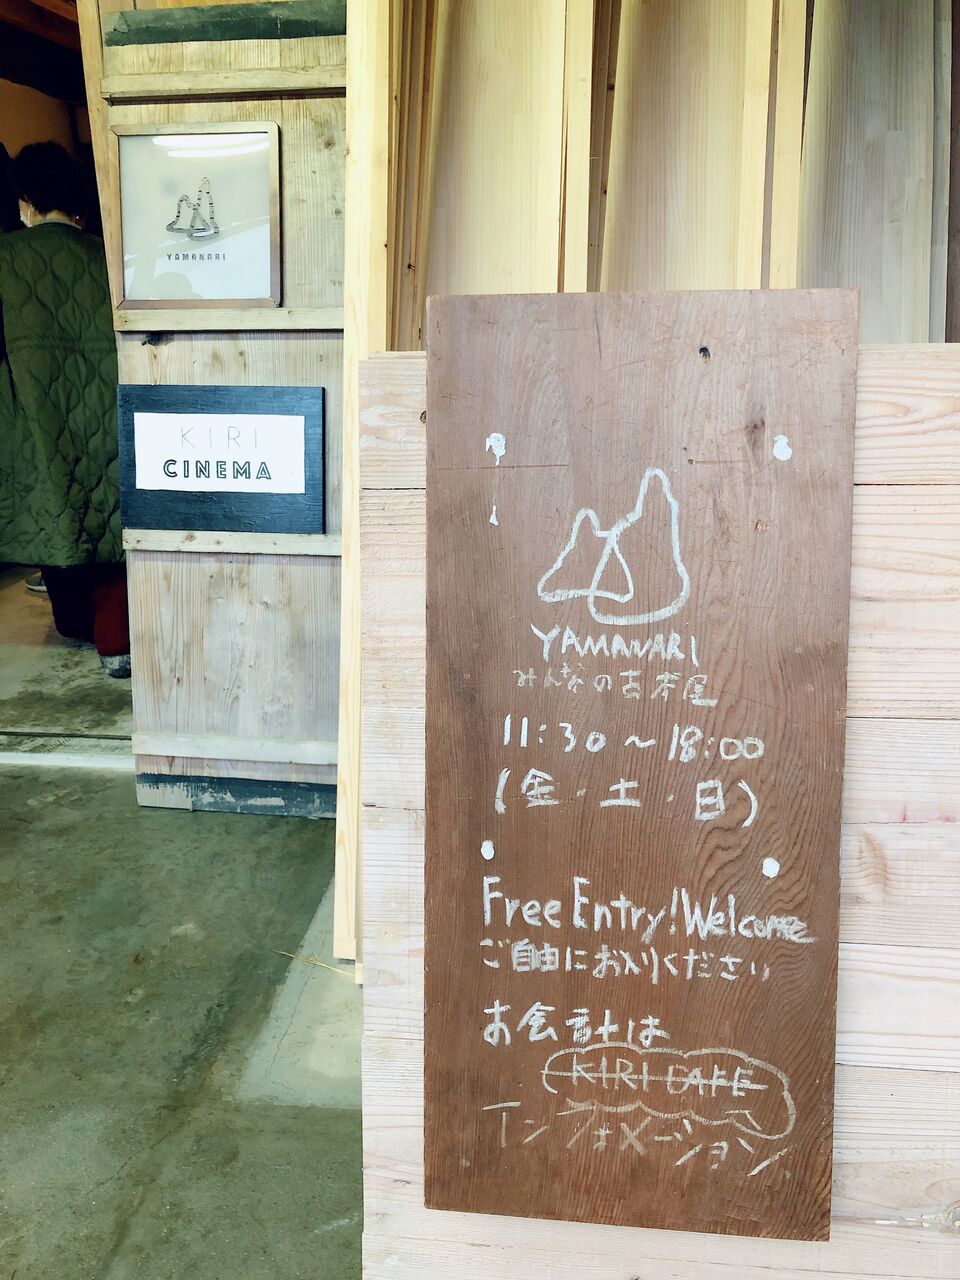 YAMANARI
KIRI
CINEMA
YAMANARI
みんなの古本屋
11:30～18:00
(金・土・日)
Free Entry! Welcome
ご自由にお入りください
お会計は
KIRI CAFE
インフォメーション